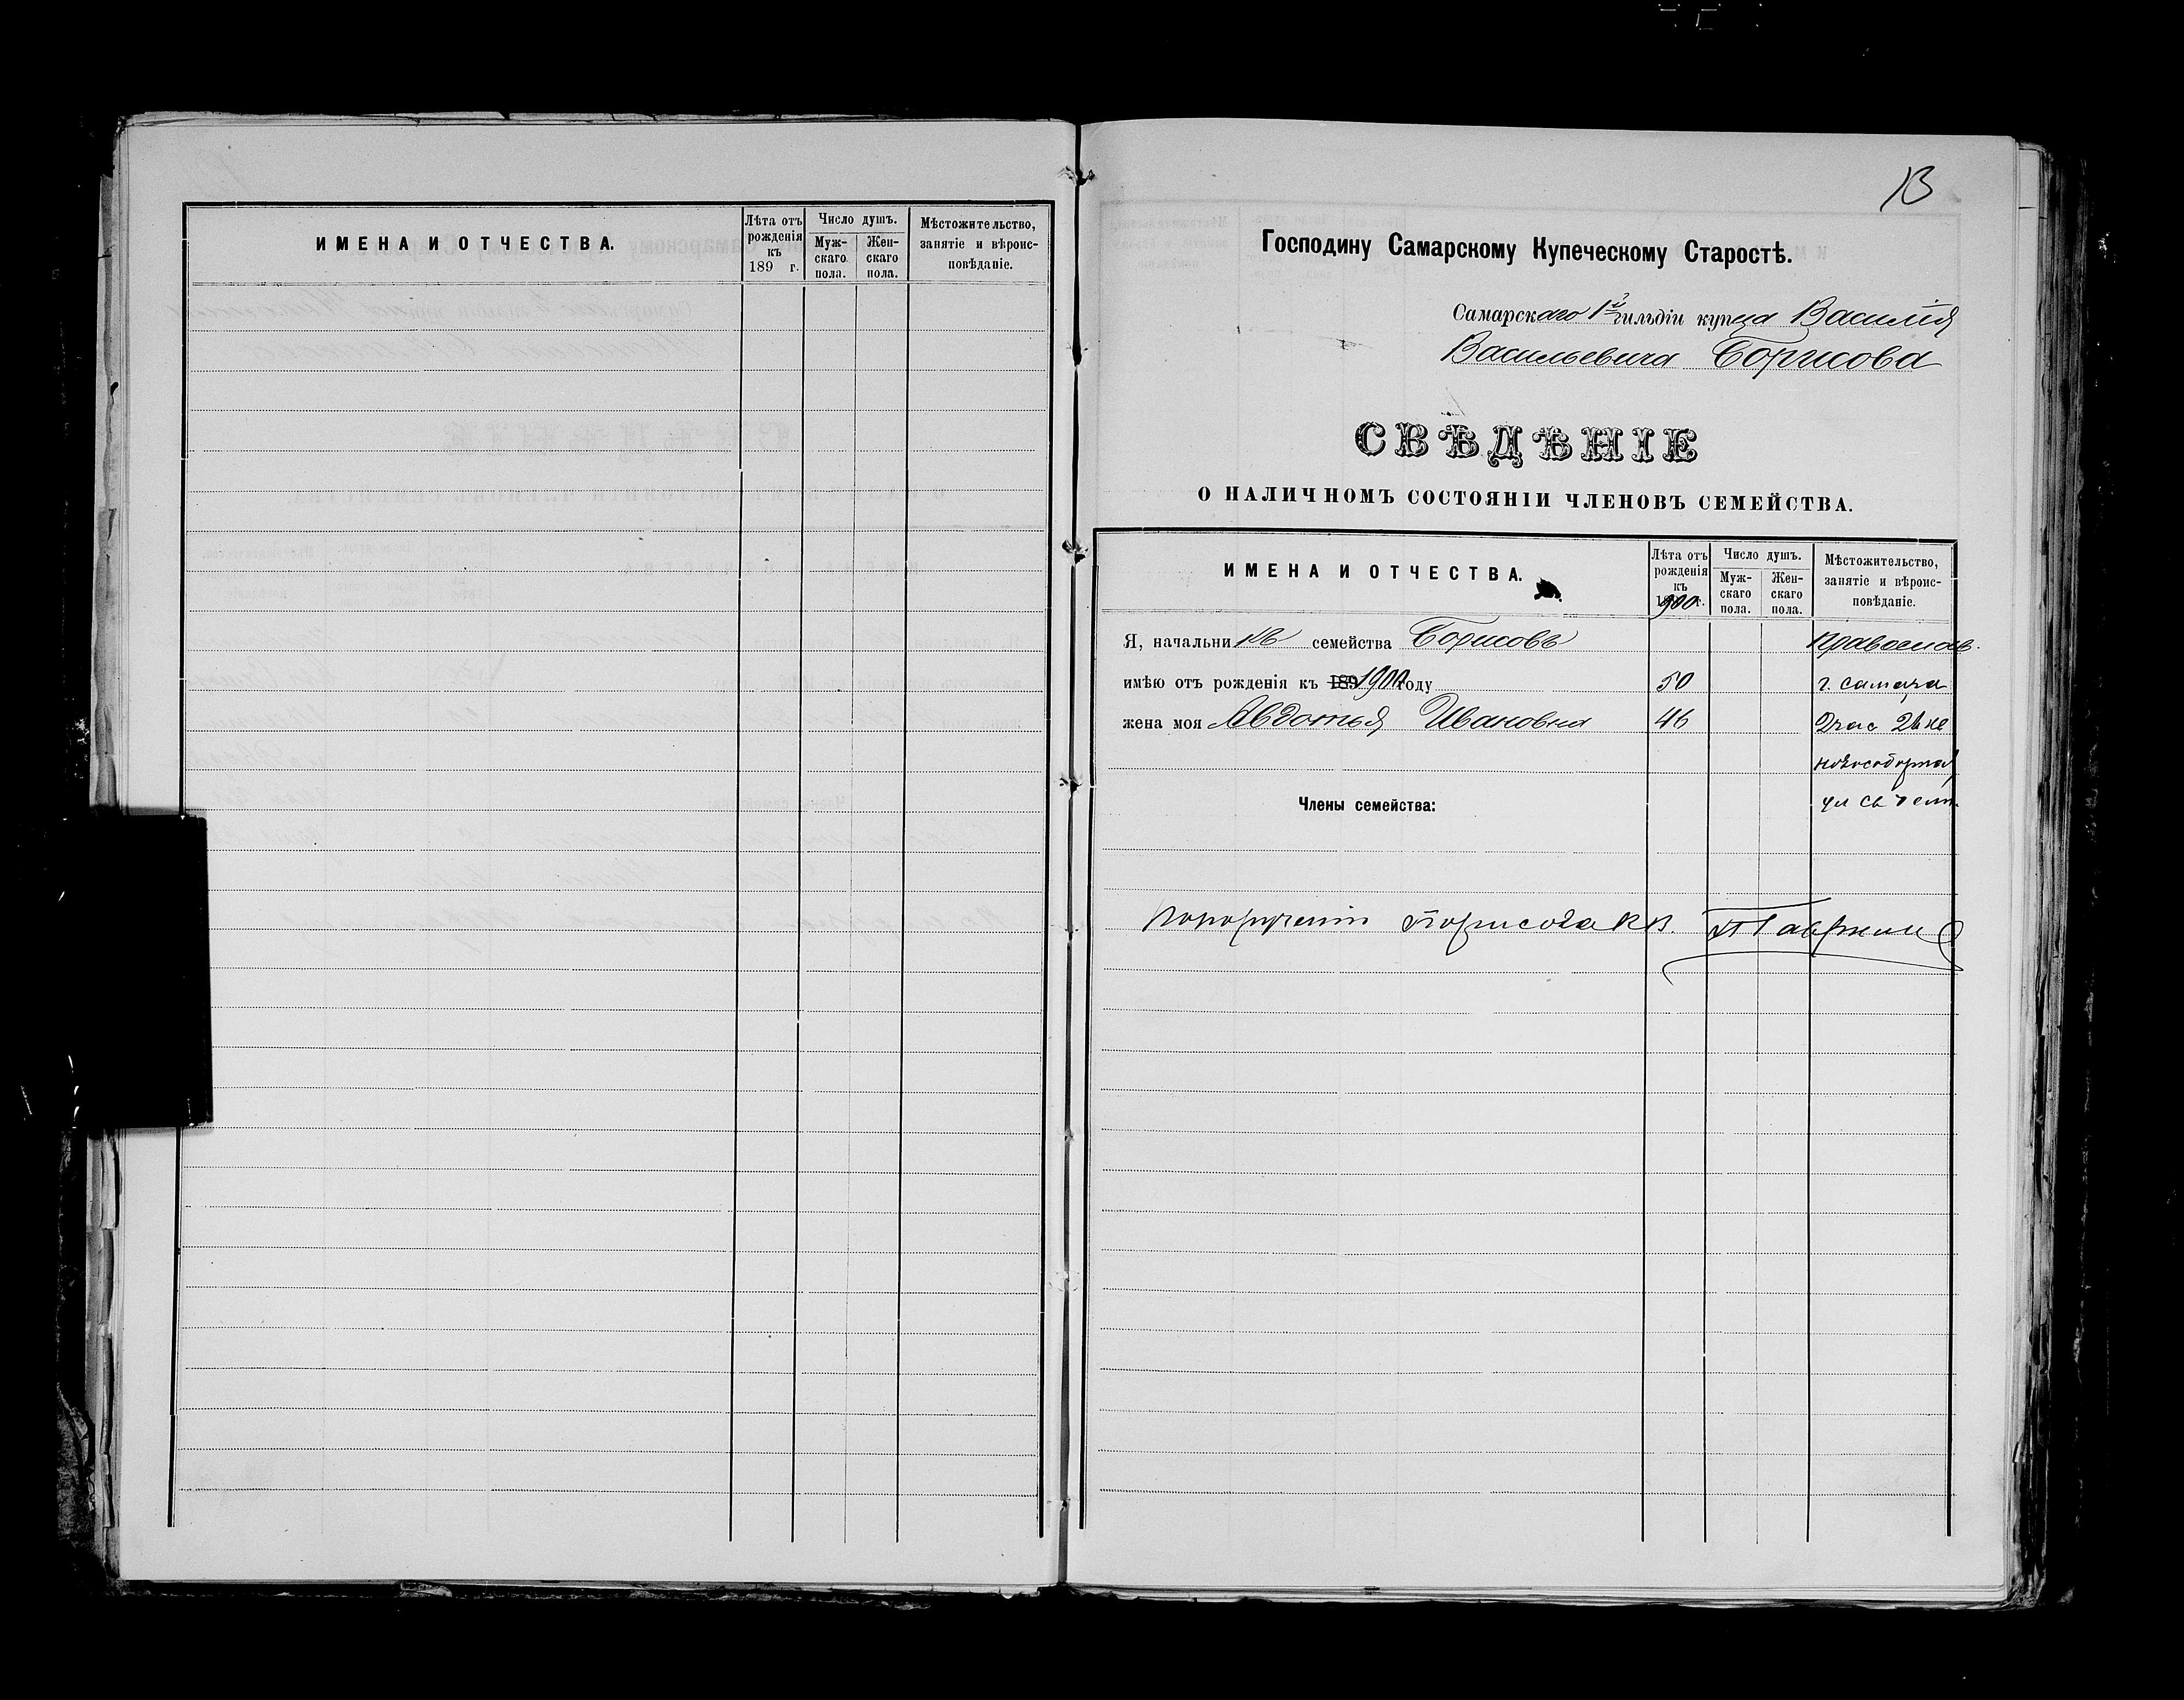 ИМЕНА И ОТЧЕСТВА.
Лѣта отъ рожденія къ 189 г.
Число душъ.
Мужскаго пола.
Женскаго пола.
Мѣстожительство, занятіе и вѣроисповѣданіе.
13
Господину Самарскому Купеческому Старостѣ.
Самарскаго 1й гильдіи купца Василія
Васильевича Борисова
СВѢДѢНІЕ
О НАЛИЧНОМЪ СОСТОЯНІИ ЧЛЕНОВЪ СЕМЕЙСТВА.
ИМЕНА И ОТЧЕСТВА.
Лѣта отъ рожденія къ 1900 г.
Число душъ.
Мужскаго пола.
Женскаго пола.
Мѣстожительство, занятіе и вѣроисповѣданіе.
Я, начальникъ семейства Борисовъ православ.
имѣю отъ рожденія къ 189 1900 году 50 г. Самара
жена моя Авдотья Ивановна 46 2 час
новособорная
Члены семейства: ул